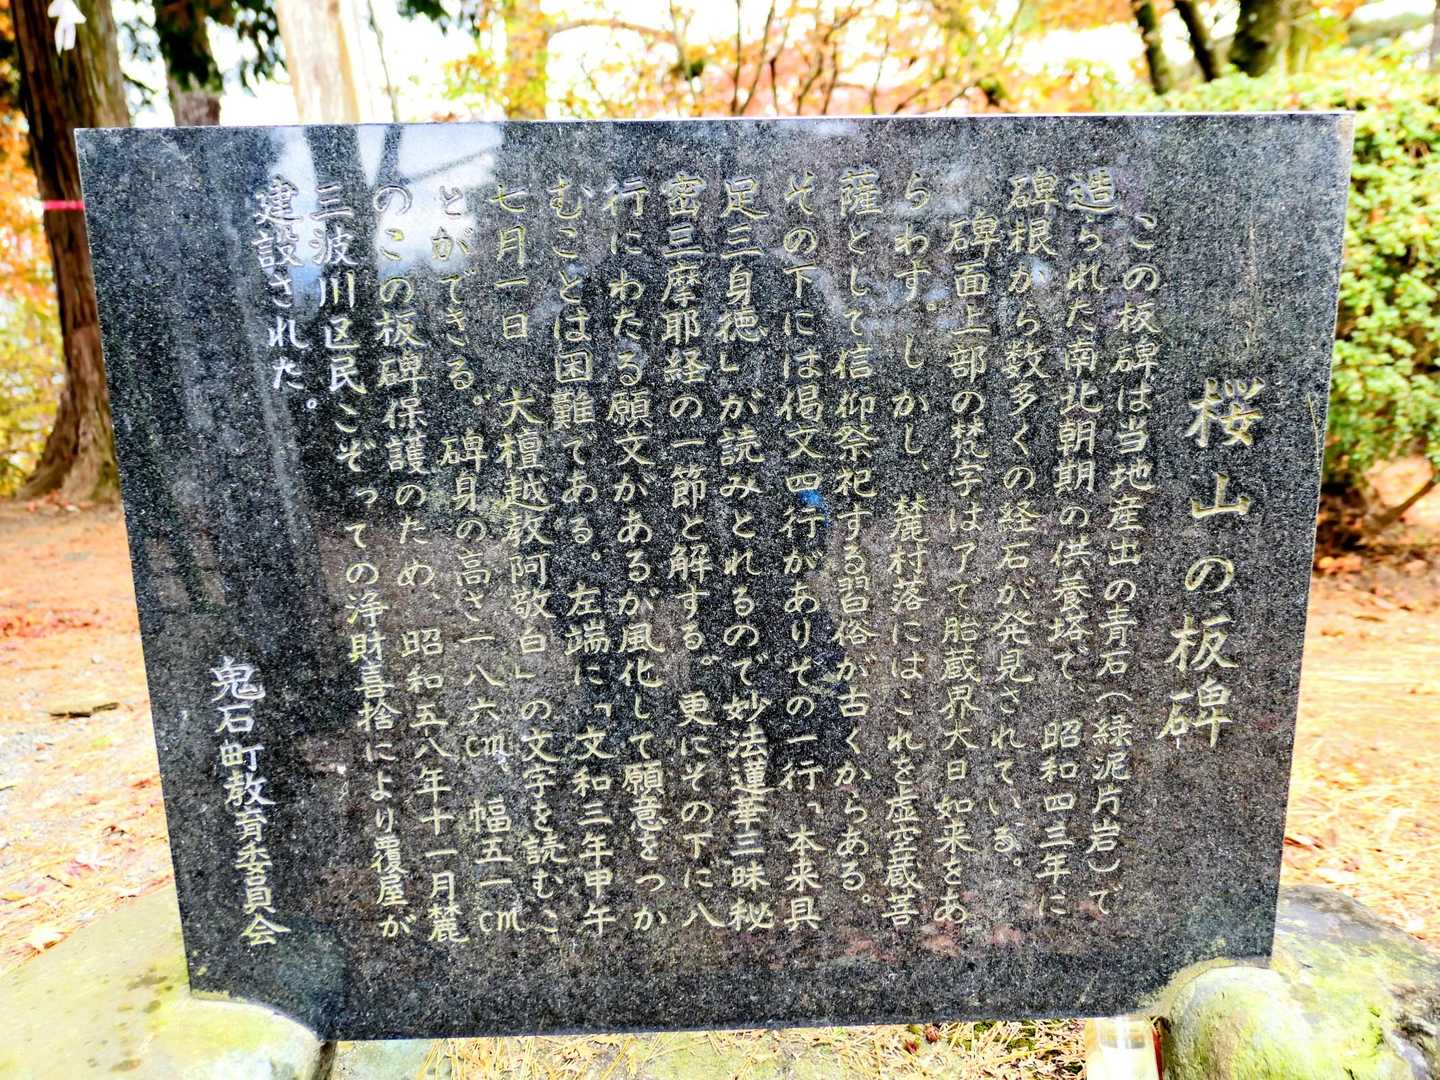 桜山の板碑
この板碑は当地産出の青石（緑泥片岩）で
造られた南北朝期の供養塔で、昭和四三年に
碑根から数多くの経石が発見されている。
碑面上部の梵字は了で胎蔵界大日如来をあ
らわす。しかし、麓村落にはこれを虚空蔵菩
薩として信仰祭祀する習俗が古くからある。
その下には偈文四行がありその一行「本来具
足三身徳」が読みとれるので妙法蓮華三昧秘
密三摩耶経の一節と解する。更にその下に八
行にわたる願文があるが風化して願意をつか
むことは困難である。左端に「文和三年甲午
七月一日　大檀越教阿敬白」の文字を読むこ
とができる。碑身の高さ一八六cm　幅五一cm
のこの板碑保護のため、昭和五八年十一月麓
三波川区民こぞっての浄財喜捨により覆屋が
建設された。
鬼石町教育委員会